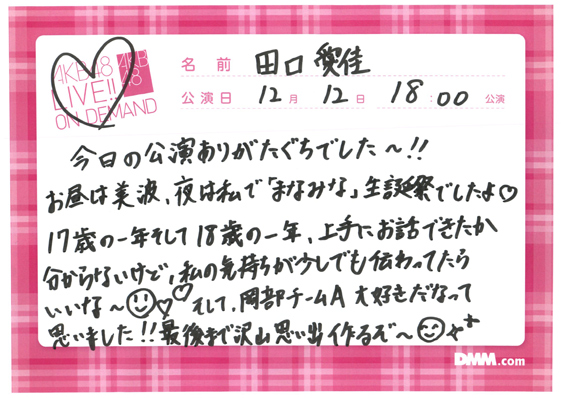 AKB48
LIVE!!
ON DEMAND
AKB
48
名前 田口愛佳
公演日 12月 12日 18:00 公演
今日の公演ありがたぐちでした〜!!
お昼は美波、夜は私で「まなみな」生誕祭でしたよ♡
17歳の一年そして18歳の一年、上手にお話できたか
分からないけど、私の気持ちが少しでも伝わってたら
いいな〜☺♡♡ そして、岡部チームA 大好きだなって
思いました!!最後まで沢山思い出作るぞ〜☺
DMM.com